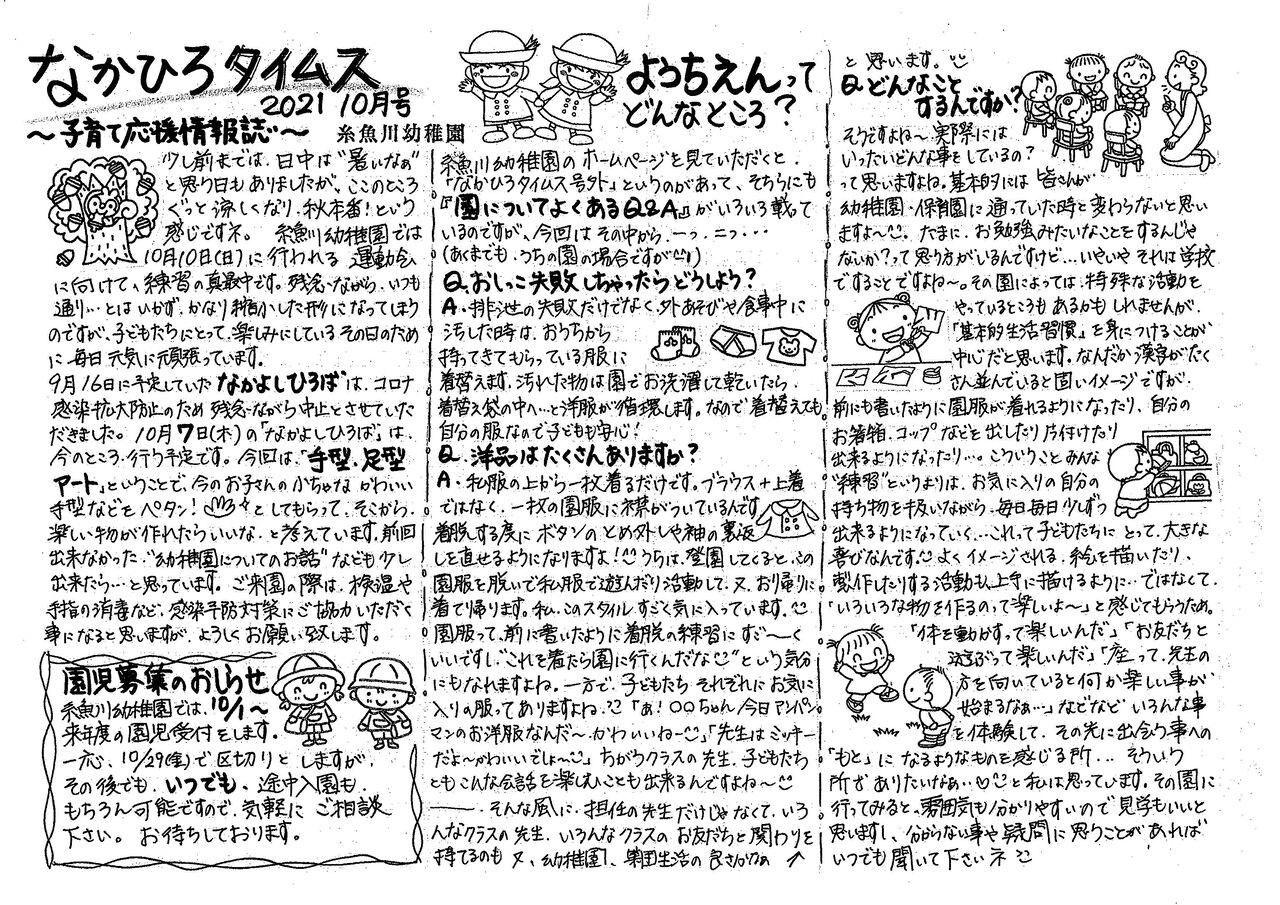 なかひろタイムス
2021 10月号
～子育て応援情報誌～ 糸魚川幼稚園
少し前までは、日中は"暑いなぁ"
と思う日もありましたが、ここのところ
ぐっと涼しくなり、秋本番！という
感じですネ。 糸魚川幼稚園では
10月10日(日)に行われる 運動会
に向けて、練習の真最中です。残念ながら、いつも
通り…とはいかず、かなり縮小した形になってはう
のですが、子どもたちにとって、楽しみにしている その日のため
に、毎日 元気に頑張っています。
9月16日に予定していた なかよしひろば は、コロナ
感染拡大防止のため 残念ながら中止とさせていた
だきました。10月7日(木)の「なかよしひろば」は、
今のところ、行う予定です。今回は、「手型、足型
アート」ということで、今のお子さんの小ちゃな かわいい
手型などをペタン！ としてもらって、そこから、
楽しい物が作れたらいいな、と考えています。前回
出来なかった、"幼稚園についてのお話"なども少し
出来たら…と思っています。ご来園の際は、検温や
手指の消毒など、感染予防対策にご協力いただく
事になると思いますが、よろしくお願い致します。
園児募集のおしらせ
糸魚川幼稚園では、10/1～
来年度の園児受付をします。
一応、10/29(金)で区切りとしますが、
その後でも、いつでも、途中入園も、
もちろん可能ですので、気軽に ご相談
下さい。 お待ちしております。
ようちえんって
どんなところ？
糸魚川幼稚園の ホームページを見ていただくと、
「なかひろタイムス号外」というのがあって、そちらにも
『園についてよくあるQ&A』がいろいろ載って
いるのですが、今回は その中から、一つ、二つ・・・
(あくまでも、うちの園の場合ですが!)
Q. おしっこ失敗しちゃったらどうしよう？
A. 排泄の失敗だけでなく、外あそびや食事中に
汚した時は、おうちから
持ってきてもらっている服に
着替えます。汚れた物は園でお洗濯して乾いたら、
着替え袋の中へ…と洋服が循環します。なので着替えても
自分の服なので子どもも安心！
Q. 洋品はたくさんありますか？
A. 私服の上から一枚着るだけです。ブラウス+上着
ではなく、一枚の園服に襟がついているんです
着脱する度に ボタンのとめ外しや袖の裏返
しを直せるようになりますよ！うちは、登園してくると、この
園服を脱いで私服で遊んだり活動して、又、お帰りに
着て帰ります。私、このスタイル、すごく気に入っています。
園服って、前に書いたように着脱の練習にすご～く
いいですし、"これを着たら園に行くんだな"という気分
にもなれますよね。一方で、子どもたち それぞれに お気に
入りの服ってありますよね、「あ！○○ちゃん今日アンパン
マンのお洋服なんだ～、かわいいね～」「先生はミッキー
だよ～かわいいでしょ～」ちがうクラスの先生、子どもたち
ともこんな会話を楽しむことも出来るんですよね～
――・そんな風に、担任の先生だけじゃなくて、いろ
んなクラスの先生、いろんなクラスの お友だちと関わりを
持てるのも 又、幼稚園、集団生活の良さかなぁ
と思います。
Q. どんなこと
するんですか？
そうですよね～、実際には
いったいどんな事をしているの？
って思いますよね。基本的には 皆さんが、
幼稚園・保育園に通っていた時と変わらないと思い
ますよ～。たまに、お勉強みたいなことをするんじゃ
ないか？って思う方がいるんですけど…いやいや それは学校
ですることですよね～。その園によっては、特殊な活動を
やっているところもあるかもしれませんが、
「基本的生活習慣」を身につけることが
中心だと思います。なんだか漢字がたく
さん並んでいると固いイメージですが、
前にも書いたように園服が着れるようになったり、自分の
お箸箱、コップなどを出したり片付けたり
出来るようになったり…。こういうことみんな
"練習"というよりは、お気に入りの自分の
持ち物を扱いながら、毎日毎日少しずつ
出来るようになっていく…これって子どもたちにとって、大きな
喜びなんです。よくイメージされる、絵を描いたり、
製作したりする活動も上手に描けるように…ではなくて、
「いろいろな物を作るのって楽しいよ～」と感じてもらうため。
「体を動かすって楽しいんだ」「お友だちと
遊ぶって楽しいんだ」「座って、先生の
方を向いていると何か楽しい事が
始まるなぁ…」などなど いろんな事
を体験して、その先に出会う事への
「もと」になるようなものを感じる所… そういう
所でありたいなぁ…と私は思っています。その園に
行ってみると、雰囲気も分かりやすいので見学もいいと
思いますし、分からない事や疑問に思うことがあれば
いつでも聞いて下さいネ